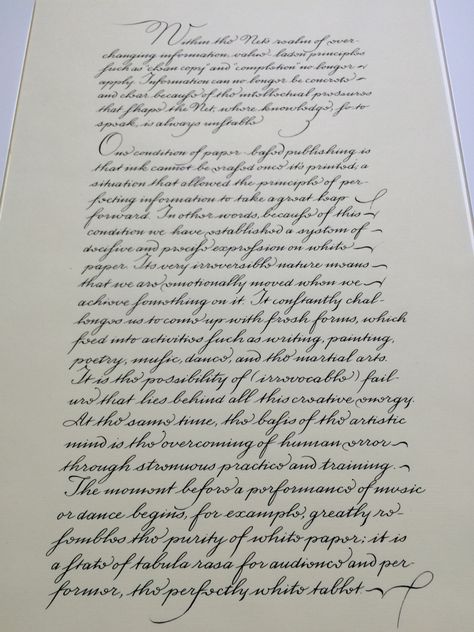 Within the Net's realm of ever-
changing information, value-laden principles
such as "clean copy" and "completion" no longer
apply. Information can no longer be concrete
and clear because of the intellectual pressures
that shape the Net, where knowledge, so to
speak, is always unstable
One condition of paper-based publishing is
that ink cannot be erased once it's printed, a
situation that allowed the principle of per-
fecting information to take a great leap
forward. In other words, because of this
condition we have established a system of
decisive and precise expression on white
paper. Its very irreversible nature means
that we are emotionally moved when we
achieve something on it. It constantly chal-
lenges us to come up with fresh forms, which
feed into activities such as writing, painting,
poetry, music, dance, and the martial arts.
It is the possibility of (irrevocable) fail-
ure that lies behind all this creative energy.
At the same time, the basis of the artistic
mind is the overcoming of human error
through strenuous practice and training.
The moment before a performance of music
or dance begins, for example, greatly re-
sembles the purity of white paper; it is
a state of tabula rasa for audience and per-
former, the perfectly white tablet